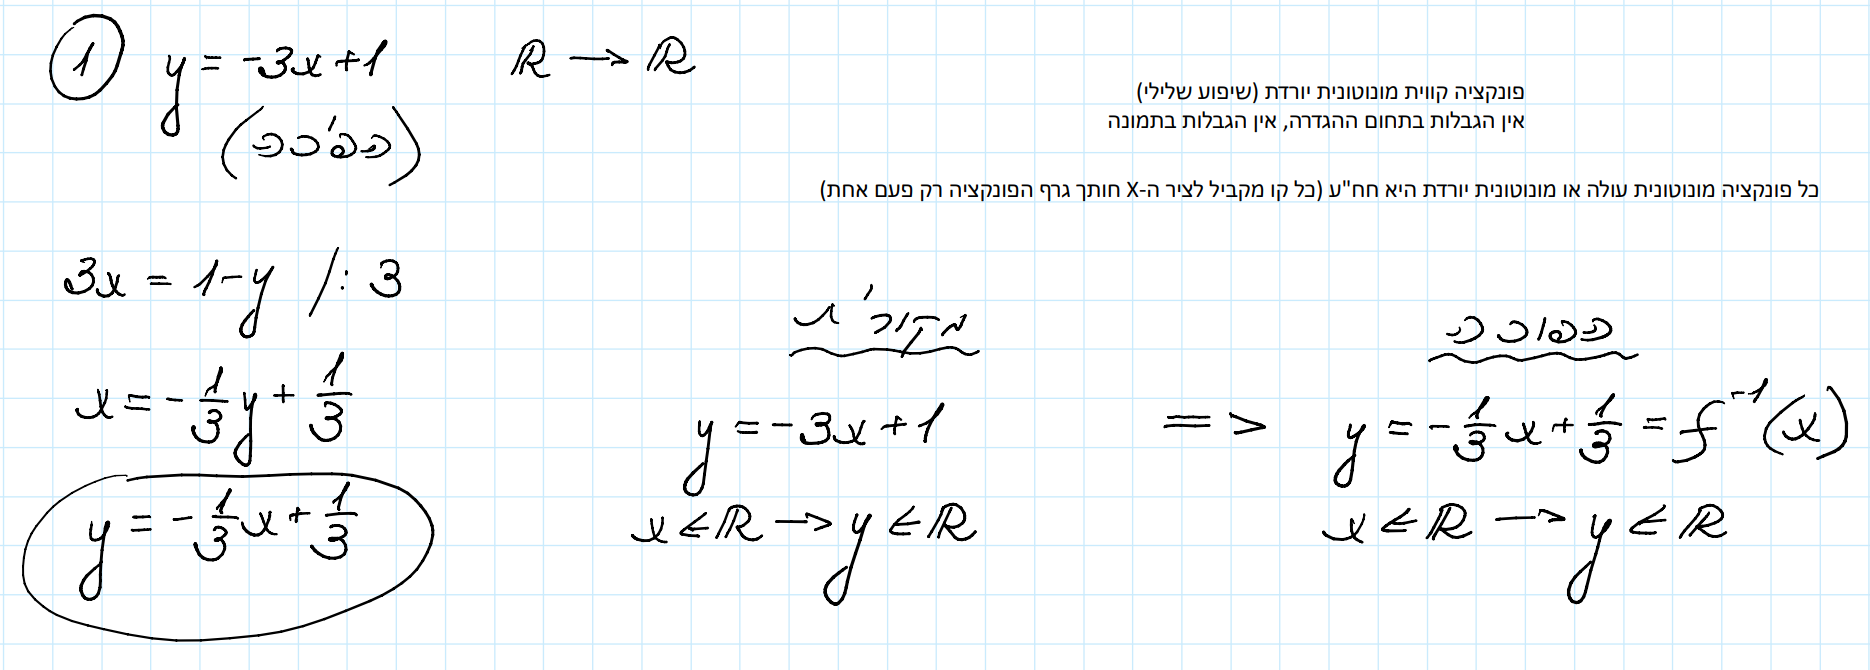 ① y = -3x+1 ℝ → ℝ
(הפיכה)
פונקציה קווית מונוטונית יורדת (שיפוע שלילי)
אין הגבלות בתחום ההגדרה, אין הגבלות בתמונה
כל פונקציה מונוטונית עולה או מונוטונית יורדת היא חח"ע (כל קו מקביל לציר ה-X חותך גרף הפונקציה רק פעם אחת)
3x = 1-y /: 3
x = -1/3 y + 1/3
y = -1/3 x + 1/3
מקורית
y = -3x+1
x ∈ ℝ → y ∈ ℝ
=>
הפוכה
y = -1/3 x + 1/3 = f⁻¹(x)
x ∈ ℝ → y ∈ ℝ